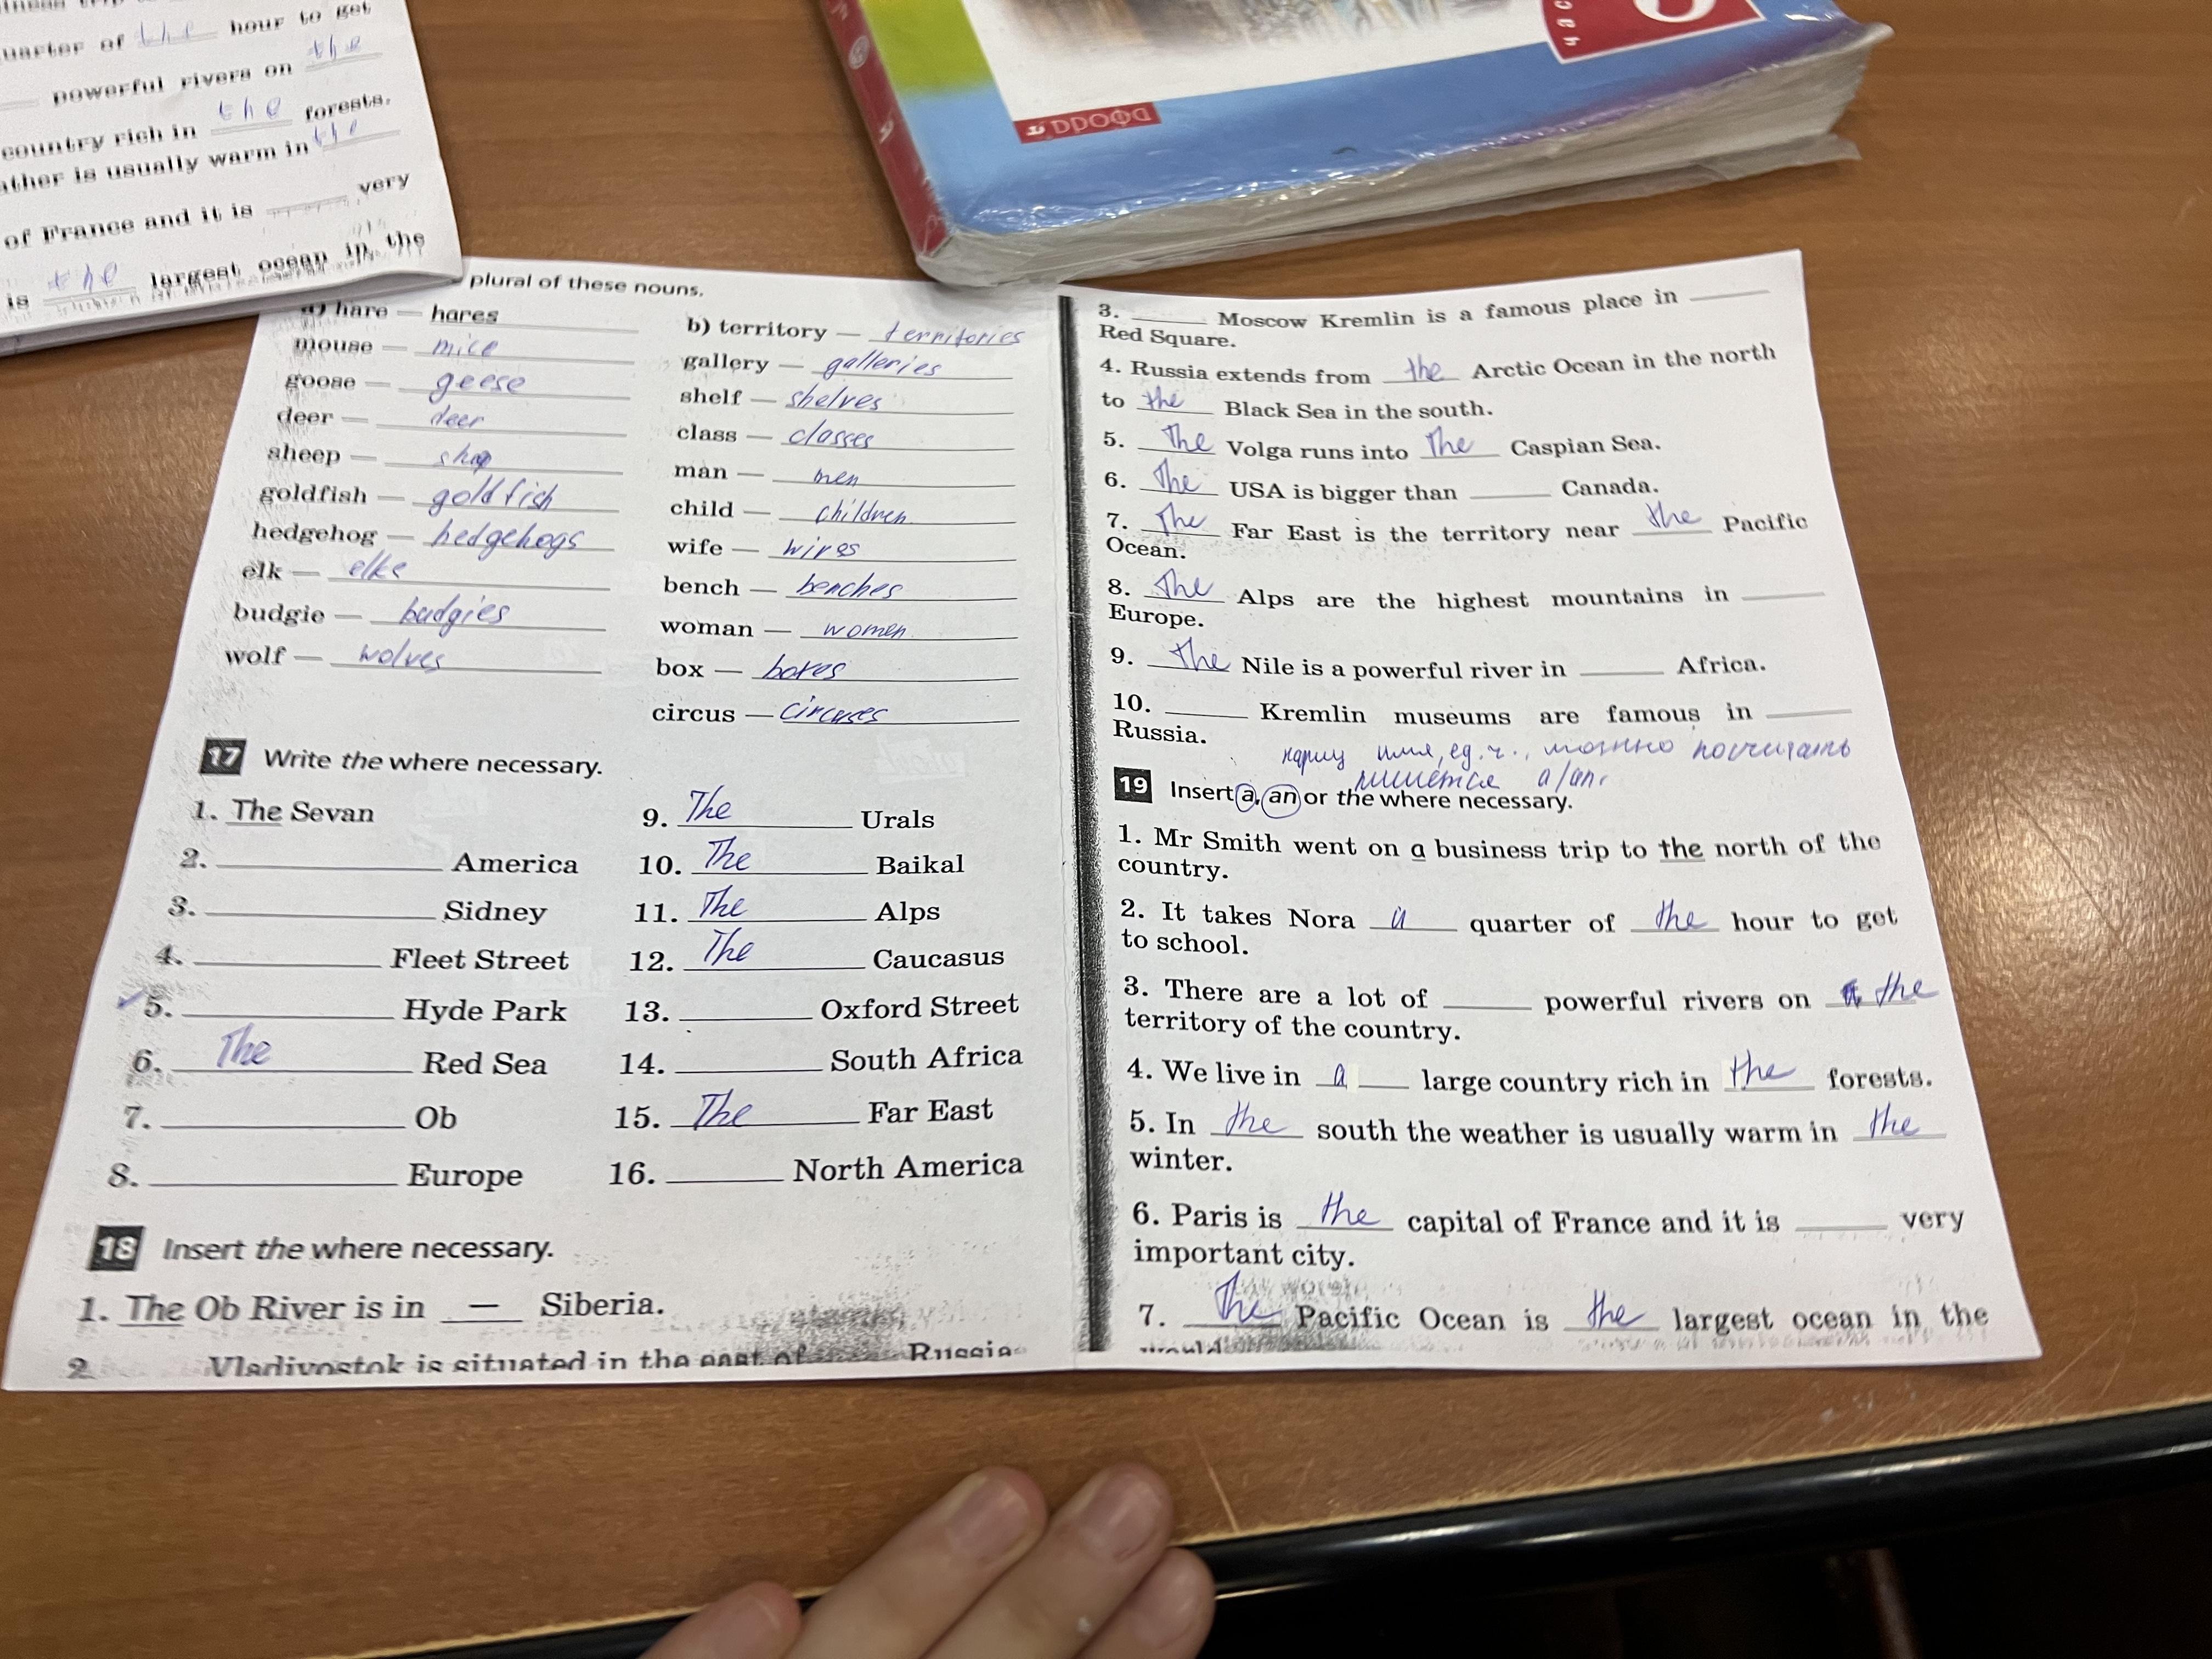 uarter of the hour to get
powerful rivers on the
country rich in the forests.
ather is usually warm in the
of France and it is ____ very
is the largest ocean in the
ДРОФА
plural of these nouns.
a) hare — hares
mouse — mice
goose — geese
deer — deer
sheep —
goldfish — goldfish
hedgehog — hedgehogs
elk — elks
budgie — budgies
wolf — wolves
b) territory — territories
gallery — galleries
shelf — shelves
class — classes
man — men
child — children
wife — wives
bench — benches
woman — women
box — boxes
circus — circuses
17 Write the where necessary.
1. The Sevan
2. ____ America
3. ____ Sidney
4. ____ Fleet Street
5. ____ Hyde Park
6. The Red Sea
7. ____ Ob
8. ____ Europe
9. The Urals
10. The Baikal
11. The Alps
12. The Caucasus
13. ____ Oxford Street
14. ____ South Africa
15. The Far East
16. ____ North America
18 Insert the where necessary.
1. The Ob River is in — Siberia.
2. ____ Vladivostok is situated in the east of ____ Russia
3. ____ Moscow Kremlin is a famous place in ____
Red Square.
4. Russia extends from the Arctic Ocean in the north
to the Black Sea in the south.
5. The Volga runs into The Caspian Sea.
6. The USA is bigger than ____ Canada.
7. The Far East is the territory near the Pacific
Ocean.
8. The Alps are the highest mountains in ____
Europe.
9. The Nile is a powerful river in ____ Africa.
10. ____ Kremlin museums are famous in ____
Russia.
нариц имя, ед.ч., можно посчитать
пишется a/an.
19 Insert a, an or the where necessary.
1. Mr Smith went on a business trip to the north of the
country.
2. It takes Nora a quarter of the hour to get
to school.
3. There are a lot of ____ powerful rivers on the
territory of the country.
4. We live in a ____ large country rich in the forests.
5. In the south the weather is usually warm in the
winter.
6. Paris is the capital of France and it is ____ very
important city.
7. The Pacific Ocean is the largest ocean in the
world